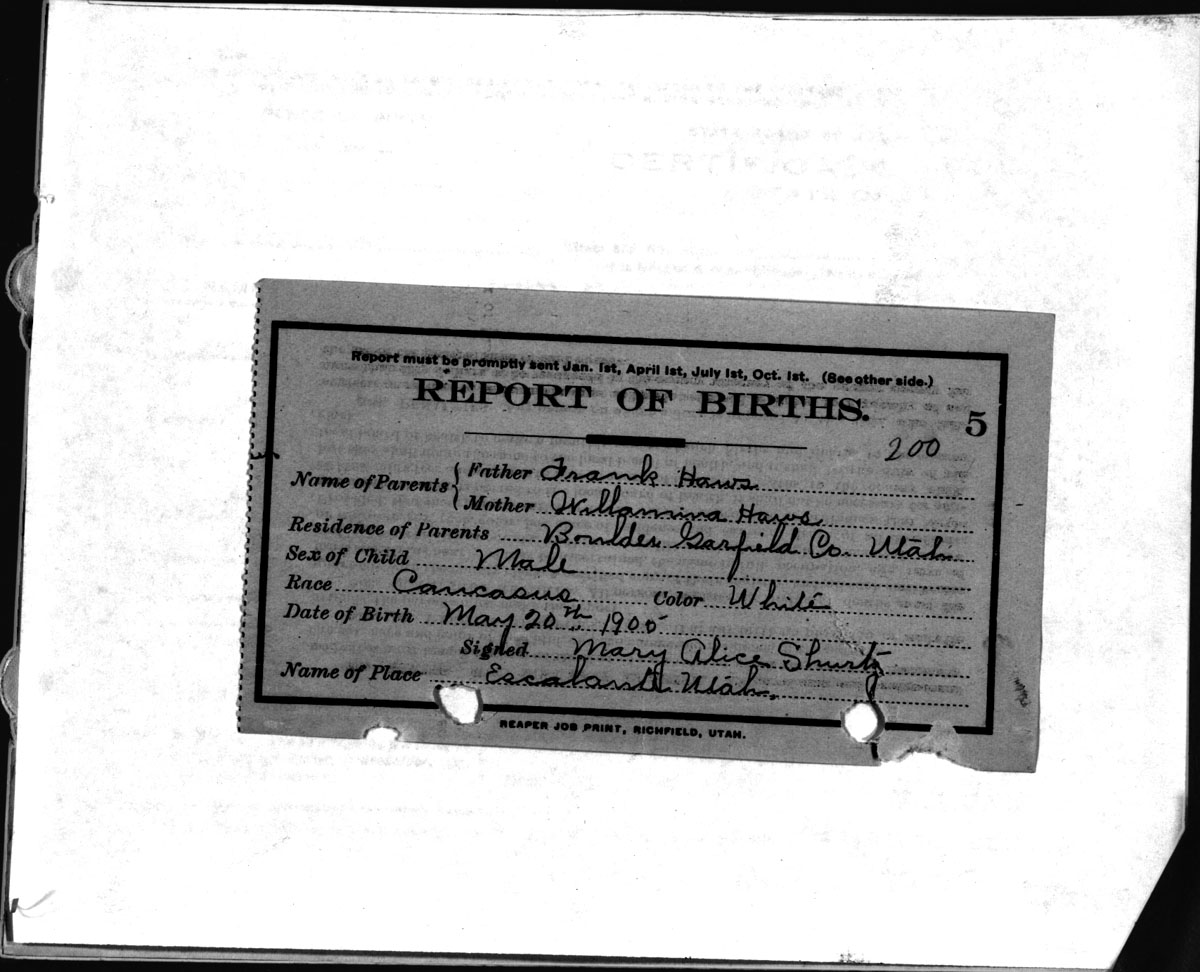 Report must be promptly sent Jan. 1st, April 1st, July 1st, Oct. 1st. (See other side.)
REPORT OF BIRTHS.
5
200
Name of Parents { Father Frank Haws
Mother Willamina Haws
Residence of Parents Boulder Garfield Co. Utah
Sex of Child Male
Race Caucasus Color White
Date of Birth May 20th 1905
Signed Mary Alice Shurtz
Name of Place Escalante Utah.
REAPER JOB PRINT, RICHFIELD, UTAH.